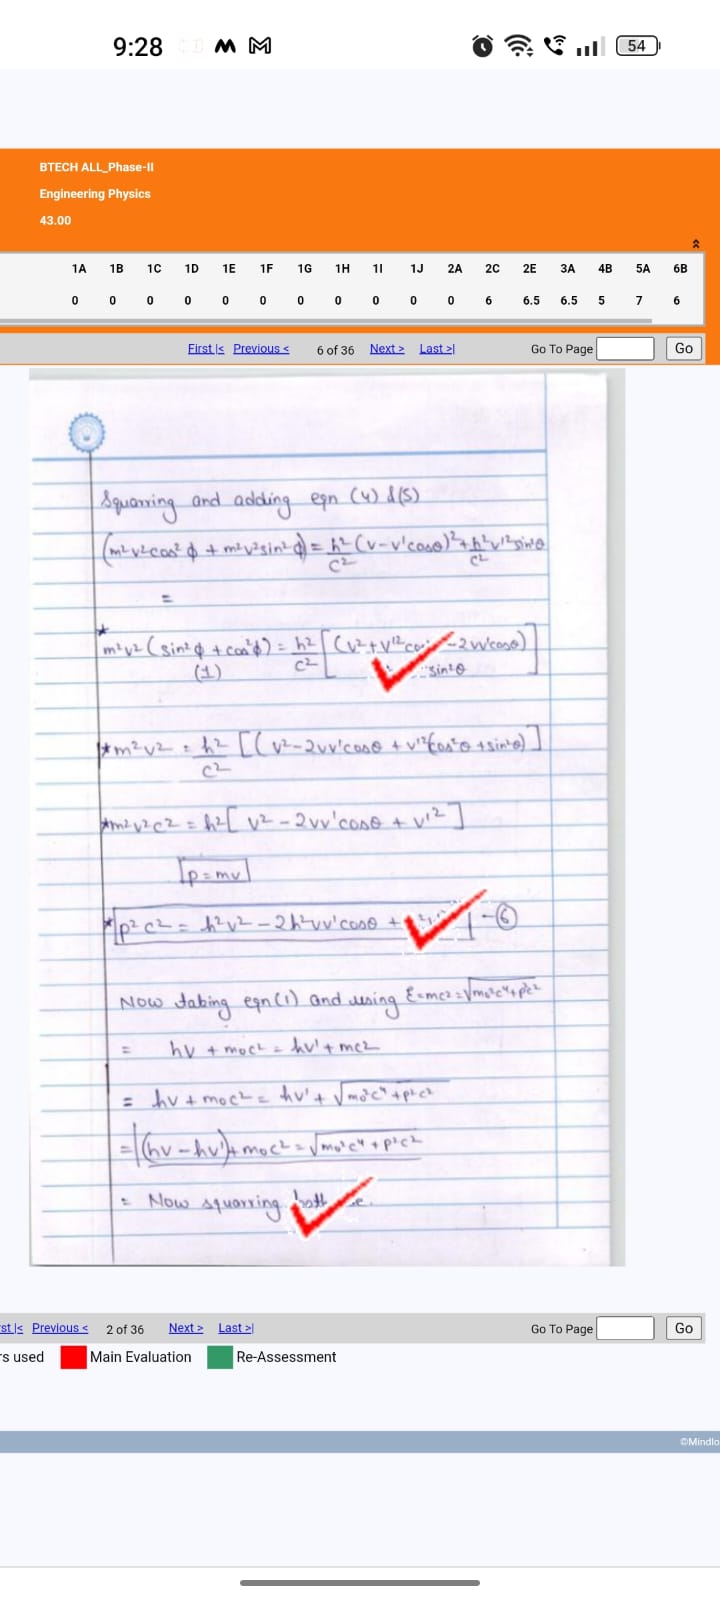 9:28
54
BTECH ALL_Phase-II
Engineering Physics
43.00
1A 1B 1C 1D 1E 1F 1G 1H 1I 1J 2A 2C 2E 3A 4B 5A 6B
0 0 0 0 0 0 0 0 0 0 0 6 6.5 6.5 5 7 6
First |< Previous < 6 of 36 Next > Last >| Go To Page Go
Squarring and adding eqn (4) & (5)
(m²v²cos²φ + m²v²sin²φ) = h²/c² (v-v'cosθ)² + h²v'²sin²θ/c²
=
*m²v² (sin²φ + cos²φ) = h²/c² [(v²+v'² -2vv'cosθ)]
(1) sin²θ
*m²v² = h²/c² [(v²-2vv'cosθ + v'²(cos²θ + sin²θ)]
*m²v²c² = h²[v² - 2vv'cosθ + v'²]
p=mv
*p²c² = h²v² - 2h²vv'cosθ + -⑥
Now taking eqn(1) and using E=mc²=√m₀²c⁴+p²c²
= hv + m₀c² = hv' + mc²
= hv + m₀c² = hv' + √m₀²c⁴+p²c²
= (hv - hv')+m₀c² = √m₀²c⁴+p²c²
= Now squarring both
rst |< Previous < 2 of 36 Next > Last >| Go To Page Go
rs used Main Evaluation Re-Assessment
©Mindlo